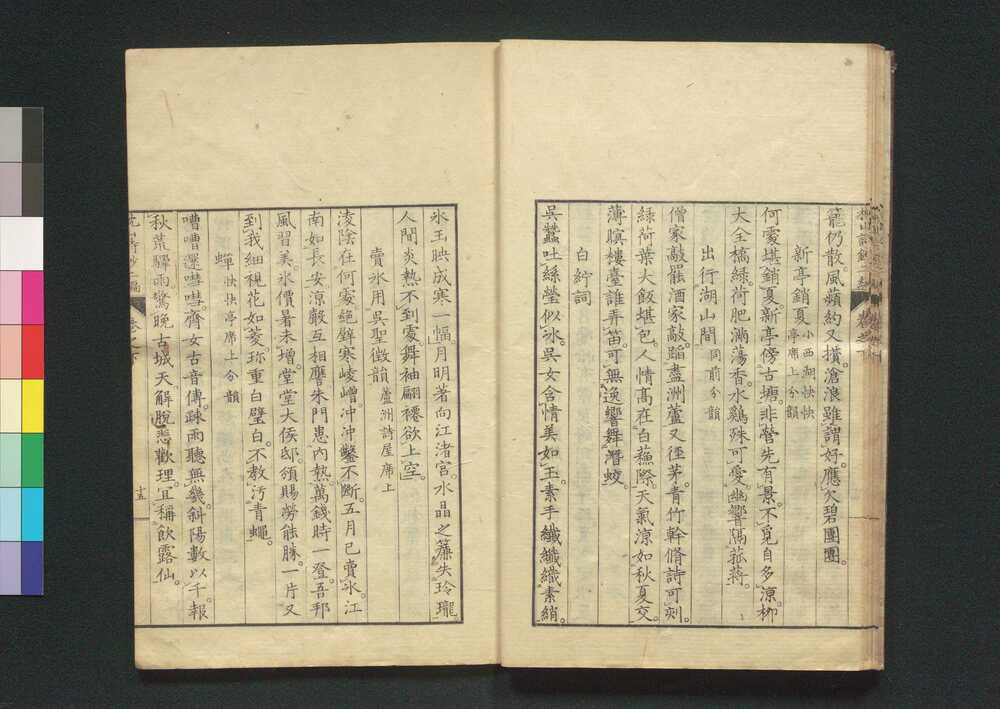 籠仍散。風蘋約又横。滄浪雖謂好。應欠碧團團。
新亭銷夏 小西湖快快亭席上分韻
何處堪銷夏。新亭傍古塘。非營先有景。不覓自多凉。柳
大全槁綠。荷肥滿蕩香。水鷄殊可愛。幽響隔菰蔣。
出行湖山間 同前分韻
僧家敲罷酒家敲。蹈盡洲蘆又徑茅。青竹幹脩詩可刻。
綠荷葉大飯堪包。人情髙在白蘓際。天氣凉如秋夏交。
薄瞑樓臺誰弄笛。可無逸響舞潛蛟。
白紵詞
吳蠶吐絲瑩似氷。吳女含情美如玉。素手纖纖織素綃。
氷玉映成寒一幅。月明著向江渚宮。水晶之簾失玲瓏。
人間炎熱不到處。舞袖翩褼欲上空。
賣氷用吳聖徴韻 蘆洲詩屋席上
凌陰在何處。絶壁寒崚嶒。冲冲鑿不斷。五月已賣氷。江
南如長安。凉嚴互相譍。朱門患内熱。萬錢時一登。吾邦
風習美。氷價暑未增。堂堂大侯邸。頒賜勞能勝。一片又
到我。細視花如菱。珎重白璧白。不敎汚青蠅。
蟬 快快亭席上分韻
嘈嘈還嘒嘒。齊女古音傳。疎雨聽無幾。斜陽數以千。報
秋荒驛雨。驚晩古城天。解脫悲歡理。宜稱飮露仙。